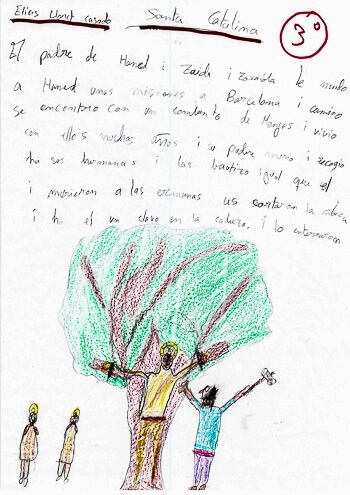 Elies Casado Santa Catalina 3º
El padre de Hamed i Zaida i Zoraida le mando
a Hamed unas misiones a Barcelona i camino
se encontro con un de Monges i vivio
con ellos muchos años i su padre murio i recogio
ha sus hermanas i las bautizo igual que el
i murieron a las ermanas cortaron la cabeza
i ha el un clavo en la cabeza, i lo enterraron